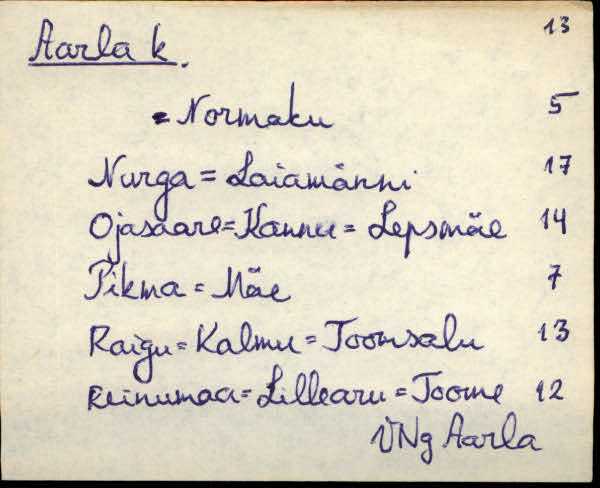 Aarla k. 13
= Normaku 5
Nurga = Laiamänni 17
Ojasaare = Kannu = Lepsmäe 14
Pikma = Mäe 7
Raigu = Kalmu = Toomsalu 13
Reinumaa = Lillearu = Toome 12
VNg Aarla